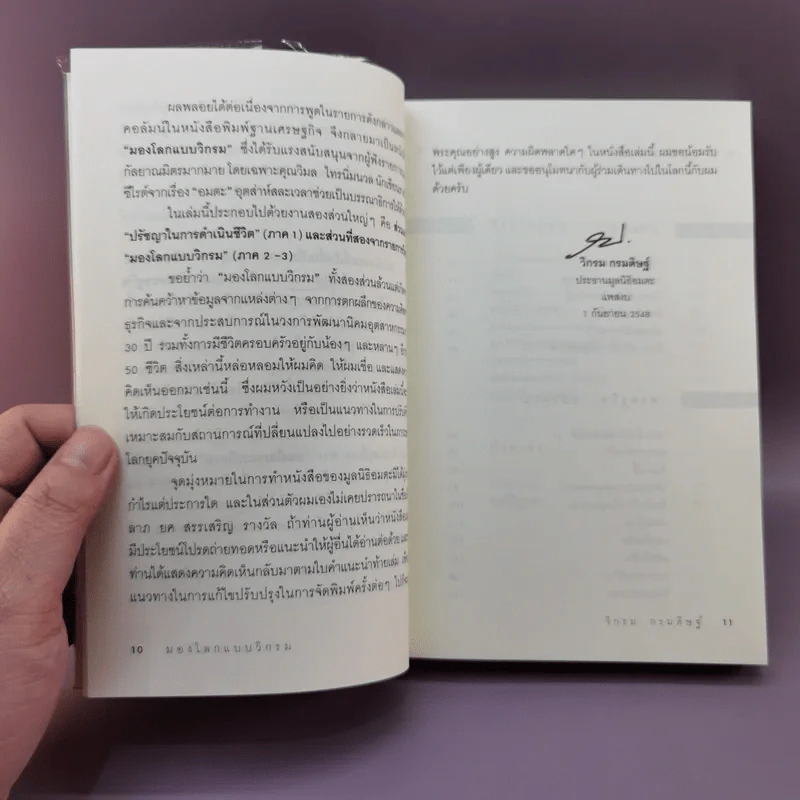 ผลพลอยได้ต่อเนื่องจากการพูดในรายการดังกล่าวและ
คอลัมน์ในหนังสือพิมพ์ฐานเศรษฐกิจ จึงกลายมาเป็น
“มองโลกแบบวิกรม” ซึ่งได้รับแรงสนับสนุนจากผู้ฟังรายการ
กัลยาณมิตรมากมาย โดยเฉพาะคุณวิมล ไทรนิ่มนวล นักเขียน
ซีไรต์จากเรื่อง “อมตะ” อุตส่าห์สละเวลาช่วยเป็นบรรณาธิการให้
ในเล่มนี้ประกอบไปด้วยงานสองส่วนใหญ่ๆ คือ
“ปรัชญาในการดำเนินชีวิต” (ภาค 1) และส่วนที่สองจากรายการ
“มองโลกแบบวิกรม” (ภาค 2 -3)
ขอย้ำว่า “มองโลกแบบวิกรม” ทั้งสองส่วนล้วนแต่
การค้นคว้าหาข้อมูลจากแหล่งต่างๆ จากการตกผลึกของความคิด
ธุรกิจและจากประสบการณ์ในวงการพัฒนานิคมอุตสาหกรรม
30 ปี รวมทั้งการมีชีวิตครอบครัวอยู่กับน้องๆ และหลานๆ
50 ชีวิต สิ่งเหล่านี้หล่อหลอมให้ผมคิด ให้ผมเชื่อ และแสดง
คิดเห็นออกมาเช่นนี้ ซึ่งผมหวังเป็นอย่างยิ่งว่าหนังสือเล่มนี้
ให้เกิดประโยชน์ต่อการทำงาน หรือเป็นแนวทางในการปรับ
เหมาะสมกับสถานการณ์ที่เปลี่ยนแปลงไปอย่างรวดเร็วใน
โลกยุคปัจจุบัน
จุดมุ่งหมายในการทำหนังสือของมูลนิธิอมตะมิได้
กำไรแต่ประการใด และในส่วนตัวผมเองไม่เคยปรารถนาใน
ลาภ ยศ สรรเสริญ รางวัล ถ้าท่านผู้อ่านเห็นว่าหนังสือ
มีประโยชน์โปรดถ่ายทอดหรือแนะนำให้ผู้อื่นได้อ่านต่อด้วย และ
ท่านได้แสดงความคิดเห็นกลับมาตามใบคำแนะนำท้ายเล่ม
แนวทางในการแก้ไขปรับปรุงในการจัดพิมพ์ครั้งต่อๆ ไป
10 มองโลกแบบวิกรม
พระคุณอย่างสูง ความผิดพลาดใดๆ ในหนังสือเล่มนี้ ผมขอน้อมรับ
ไว้แต่เพียงผู้เดียว และขออนุโมทนากับผู้ร่วมเดินทางไปในโลกนี้กับผม
ด้วยครับ
วิกรม กรมดิษฐ์
ประธานมูลนิธิอมตะ
1 กันยายน 2548
วิกรม กรมดิษฐ์ 11